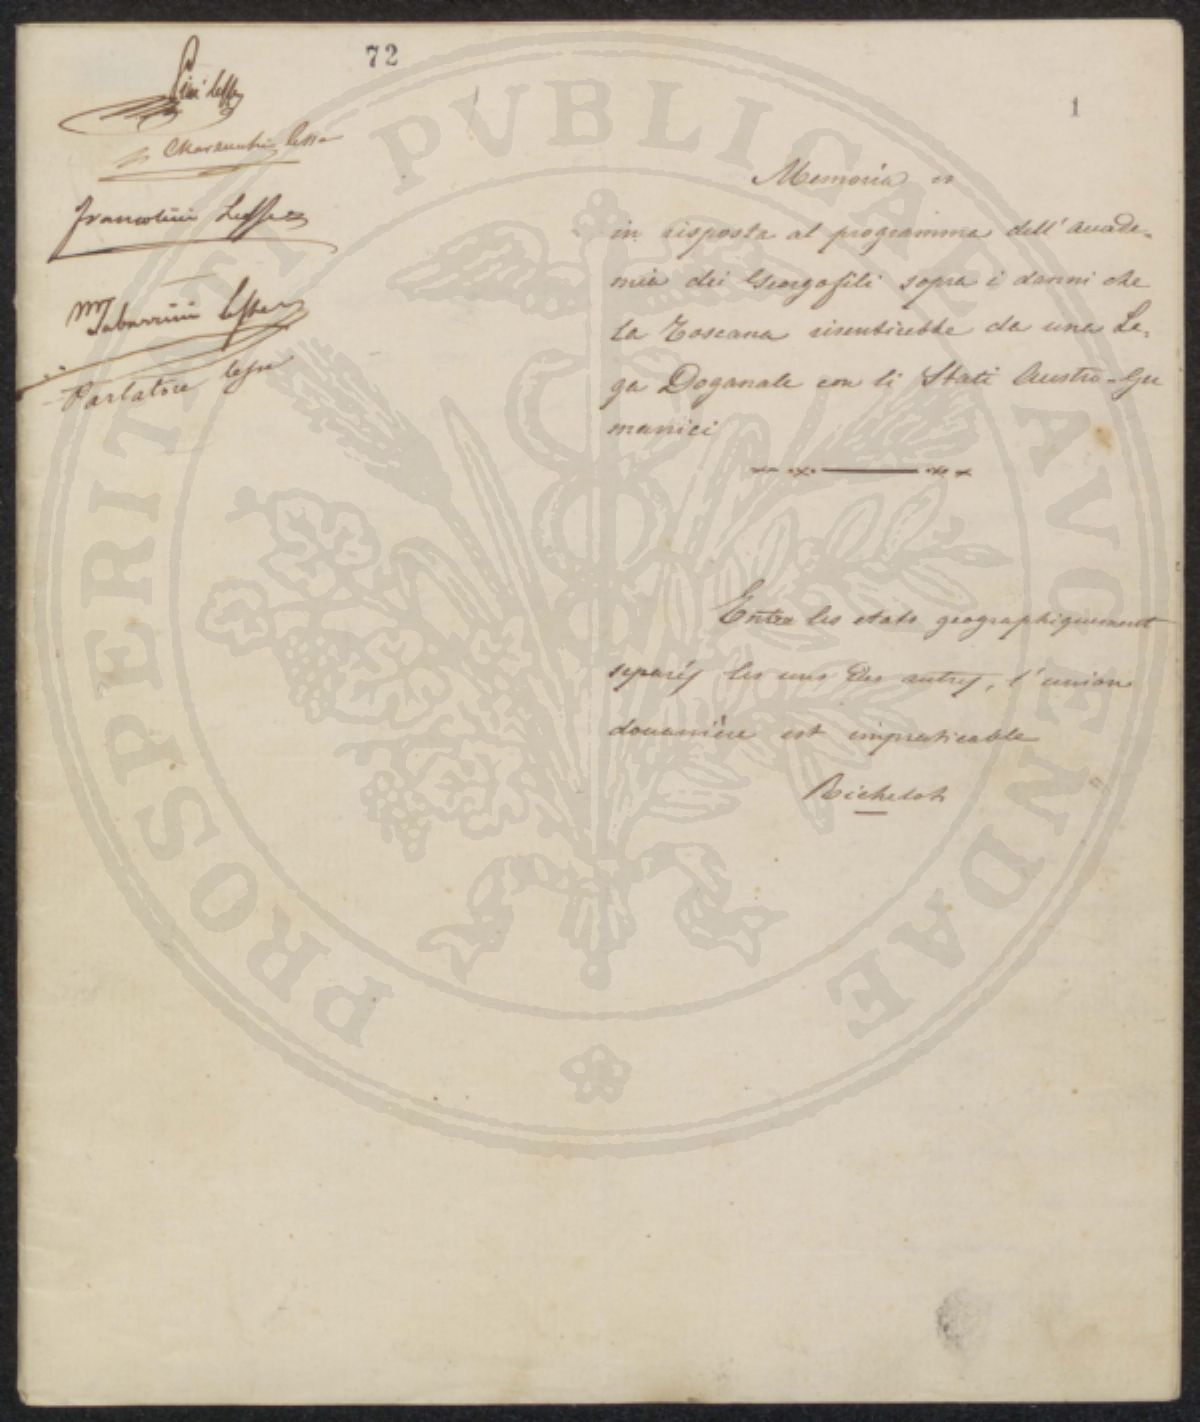 72
1
Pini lesse
lesse
Francolini Lesse
M Tabarrini lesse
Parlatore lesse
Memoria
in risposta al programma dell' accade-
mia dei Georgofili sopra i danni che
la Toscana risentirebbe da una Le-
ga Doganale con li Stati Austro-Ger
manici
Entre les etats geographiquement
separés les uns des autres, l'union
douanière est impraticable
Richelot
PROSPERITATI PVBLICAE AVGENDAE